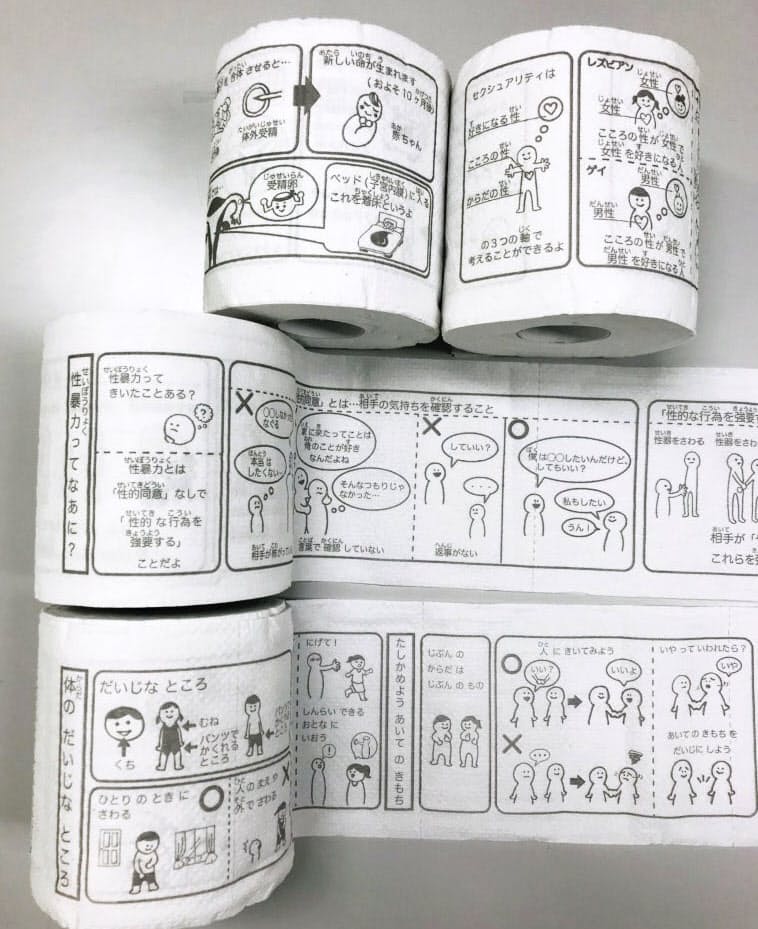 合体 させると…
体外受精
新しい命が生まれます
(およそ10ヶ月後)
赤ちゃん
受精卵
ベッド(子宮内膜)に入る
これを着床というよ
セクシュアリティは
好きになる性
こころの性
からだの性
の3つの軸で
考えることができるよ
レズビアン
女性
女性
こころの性が女性で
女性を好きになる人
ゲイ
男性
男性
こころの性が男性で
男性を好きになる人
性暴力ってなあに?
性暴力って
きいたことある?
性暴力とは
「性的同意」なしで
「性的な行為を
強要する」
ことだよ
なぐる
本当は
したくない…
性的同意」とは…相手の気持ちを確認すること
家に来たってことは
俺のことが好き
なんだよね
そんなつもりじゃ
なかった…
言葉で確認していない
していい?
…
返事がない
僕は〇〇したいんだけど、
してもいい?
私もしたい
うん!
「性的な行為を強要
性器をさわる
相手が
これらを
体の だいじな ところ
だいじな ところ
くち
むね
パンツで
かくれる
ところ
ひとり の とき に
さわる
人の まえ や
外で さわる
にげて!
しんらい できる
おとな に
いおう
!
たしかめよう あいて の きもち
じぶん の
からだ は
じぶん の もの
人 に きいてみよう
いい?
いいよ
…
いや って いわれたら?
いや
あいて の きもち を
だいじに しよう